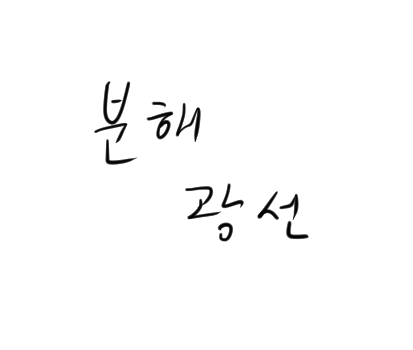 분해
광선